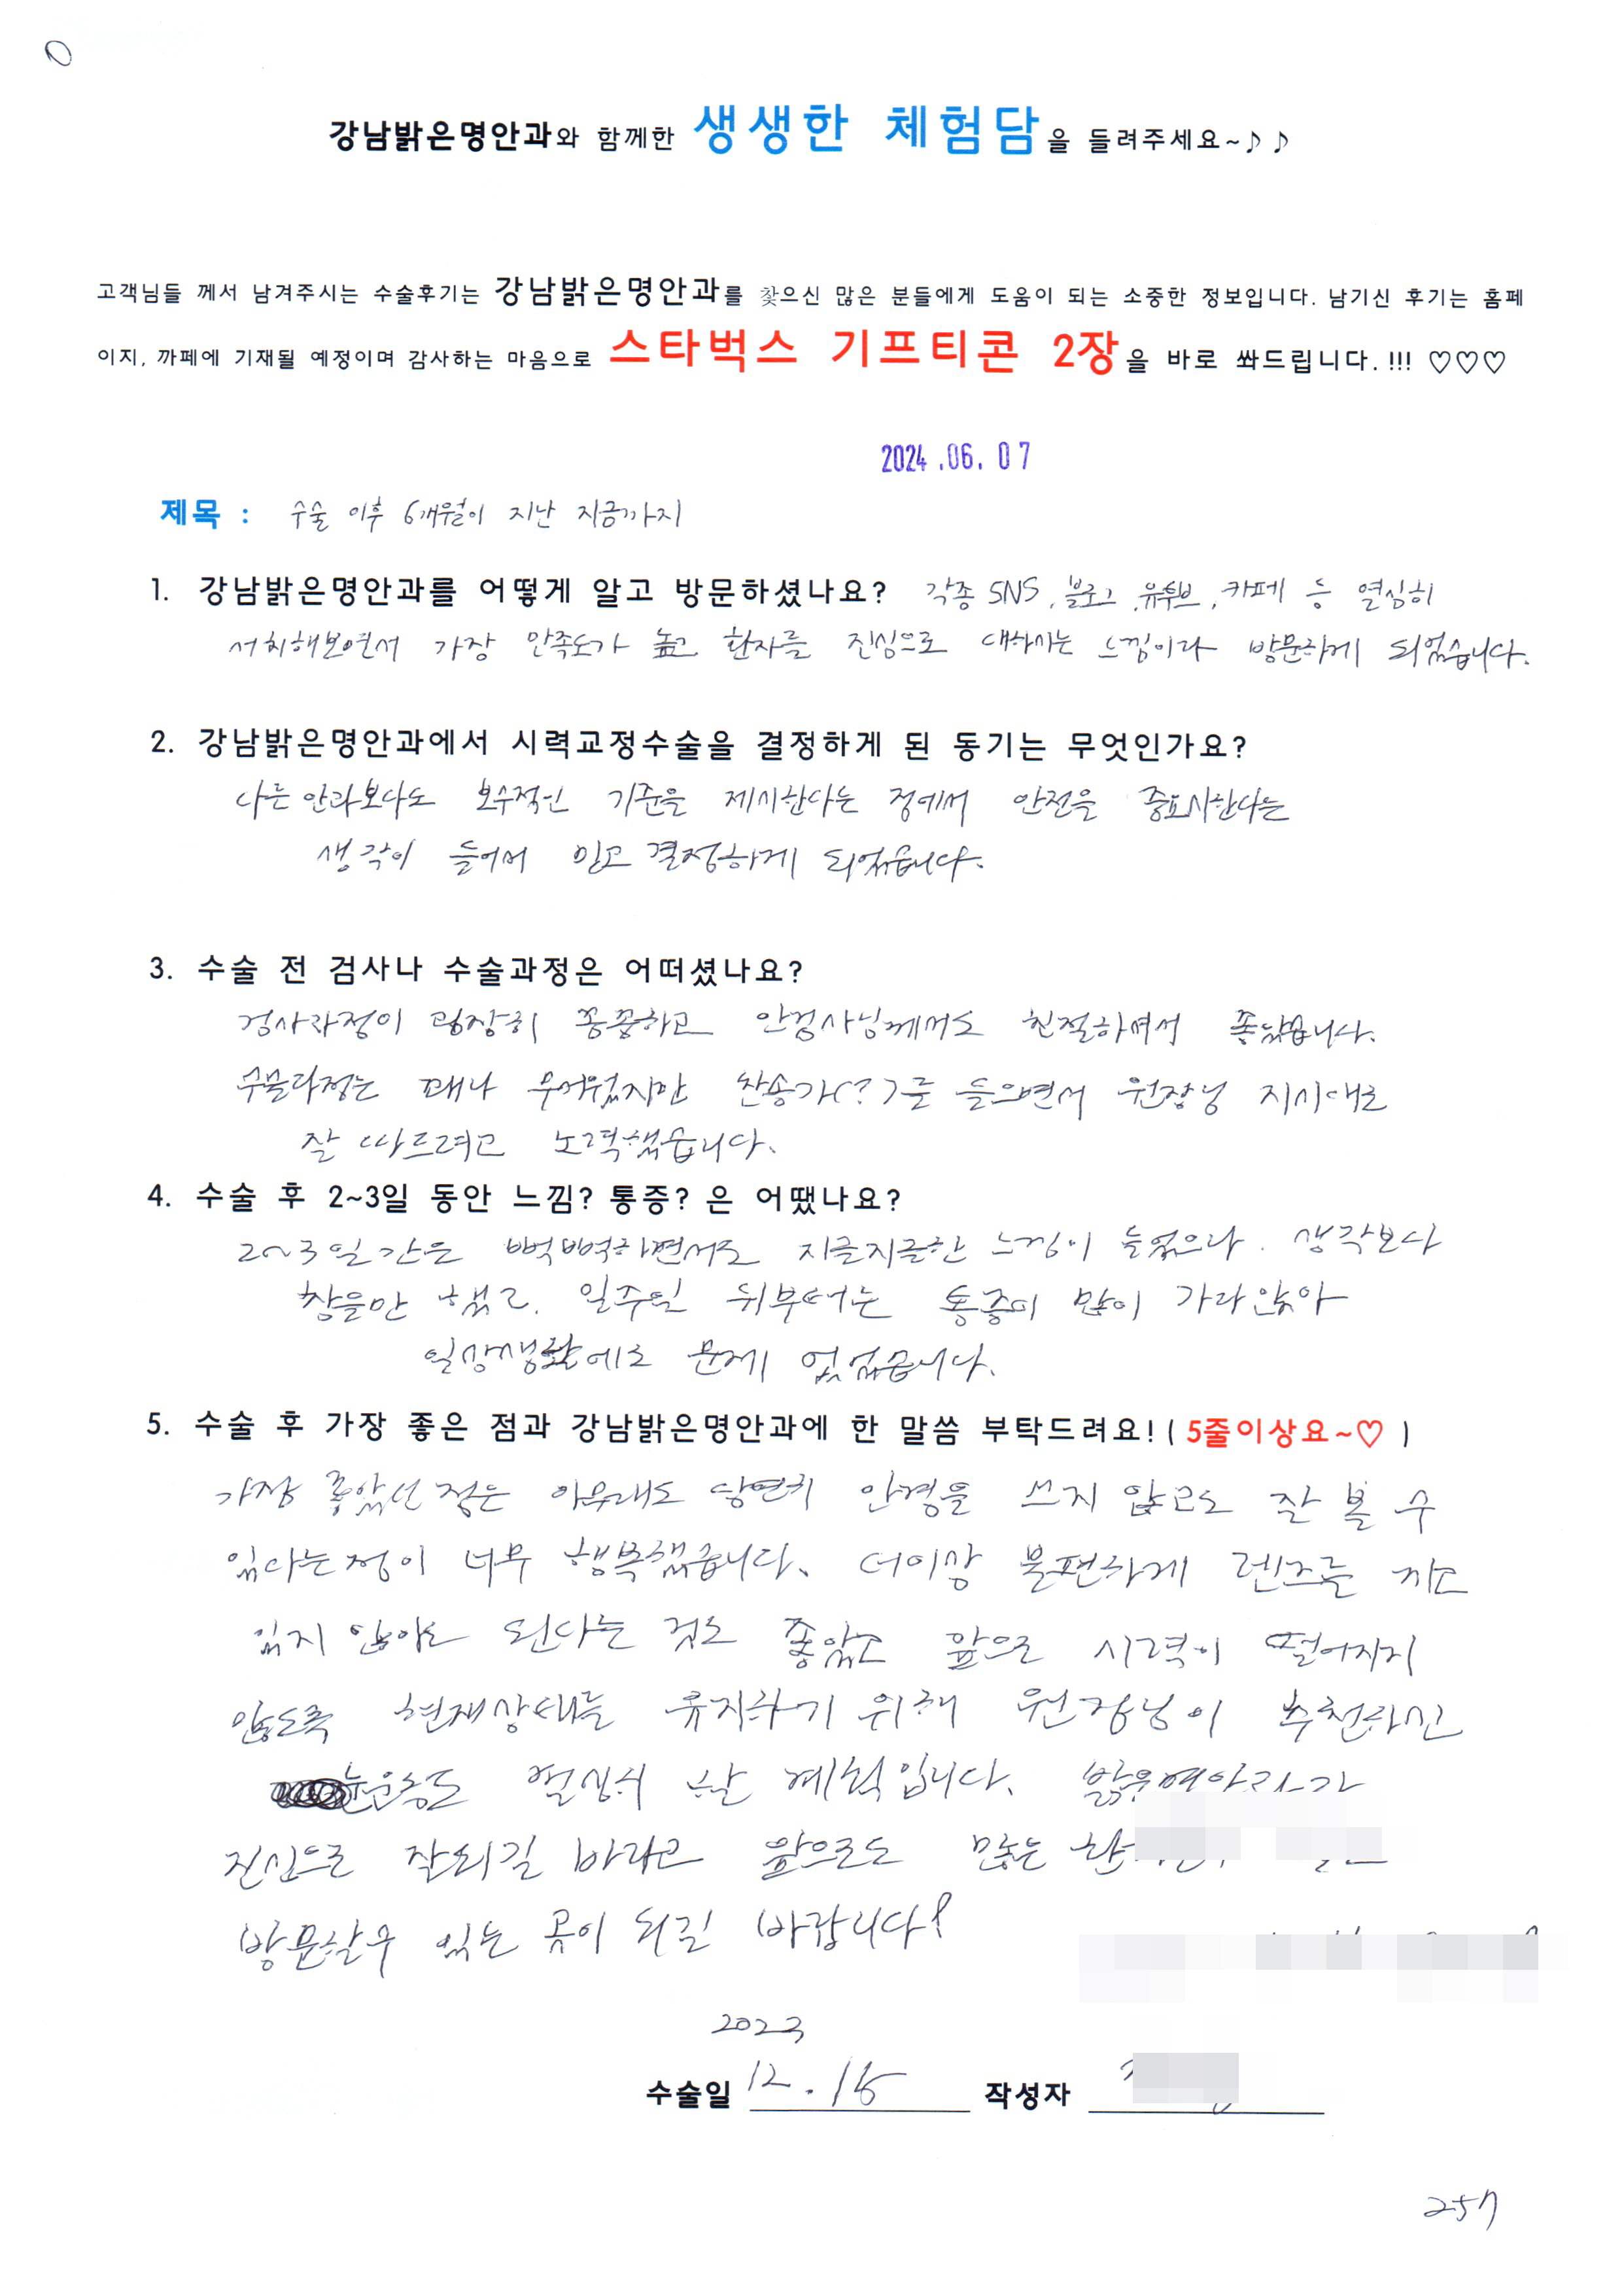 강남밝은명안과와 함께한 생생한 체험담을 들려주세요~♪♪
고객님들 께서 남겨주시는 수술후기는 강남밝은명안과를 찾으신 많은 분들에게 도움이 되는 소중한 정보입니다. 남기신 후기는 홈페
이지, 까페에 기재될 예정이며 감사하는 마음으로 스타벅스 기프티콘 2장을 바로 쏴드립니다.!!! ♡♡♡
2024.06.07
제목 : 수술 이후 6개월이 지난 지금까지
1. 강남밝은명안과를 어떻게 알고 방문하셨나요? 각종 SNS, 블로그, 유튜브, 카페 등 열심히
서치해보면서 가장 만족도가 높고 환자를 진심으로 대하시는 느낌이라 방문하게 되었습니다.
2. 강남밝은명안과에서 시력교정수술을 결정하게 된 동기는 무엇인가요?
다른 안과보다도 보수적인 기준을 제시한다는 점에서 안전을 중요시한다는
생각이 들어서 믿고 결정하게 되었습니다.
3. 수술 전 검사나 수술과정은 어떠셨나요?
검사과정이 굉장히 꼼꼼하고 안검사님께서도 친절하셔서 좋았습니다.
수술과정은 꽤나 무서웠지만 찬송가(?)를 들으면서 원장님 지시대로
잘 따르려고 노력했습니다.
4. 수술 후 2~3일 동안 느낌? 통증? 은 어땠나요?
2~3일간은 뻑뻑하면서도 지글지글한 느낌이 들었으나, 생각보다
참을만 했고, 일주일 뒤부터는 통증이 많이 가라앉아
일상생활에도 문제 없었습니다.
5. 수술 후 가장 좋은 점과 강남밝은명안과에 한 말씀 부탁드려요!( 5줄이상요~♡ )
가장 좋았던 점은 아무래도 당연히 안경을 쓰지 않고도 잘 볼 수
있다는 점이 너무 행복했습니다. 더이상 불편하게 렌즈를 끼고
있지 않아도 된다는 것도 좋았고 앞으로 시력이 떨어지지
않도록 현재상태를 유지하기 위해 원장님이 추천하신
눈운동도 열심히 할 계획입니다. 밝은명안과가
진심으로 잘되길 바라고 앞으로도 많은
방문할수 있는 곳이 되길 바랍니다!
2023
수술일 12.15 작성자
257